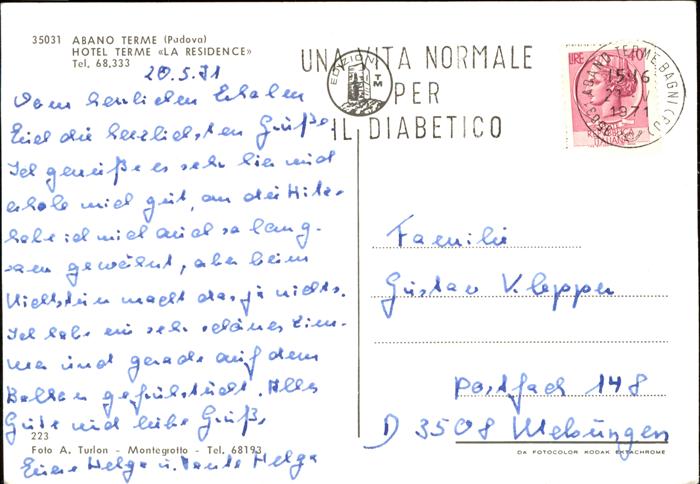 35031 ABANO TERME (Padova)
HOTEL TERME «LA RESIDENCE»
Tel. 68,333
20.5.71
Vom herrlichen
Euch die herzlichsten Grüße
Ich genieße es sehr hier und
erhole mich gut, an die Hitze
habe ich mich auch so lang-
sam gewöhnt, aber beim
Nichtstun macht das ja nichts.
Ich habe ein sehr schönes Zim-
mer und gerade auf dem
Balkon gefrühstückt. Alles
Gute und liebe Grüße
Eure Helga u. Tante Helga
223
Foto A. Turlon - Montegrotto - Tel. 68193
EDIZIONI
TM
UNA VITA NORMALE
PER
IL DIABETICO
LIRE
35031 ABANO TERME BAGNI (PD)
1971
Familie
Gustav Klepper
Postfach 148
D 3508 Melsungen
DA FOTOCOLOR KODAK EKTACHROME